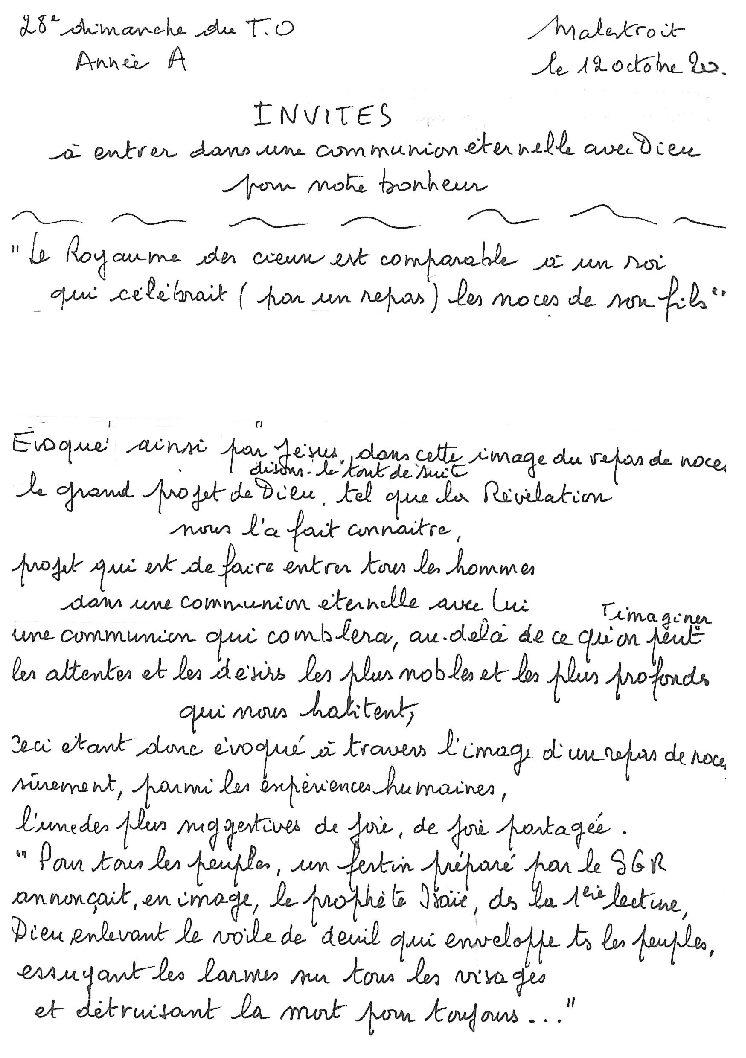 28e dimanche du T.O
Malestroit
Année A
le 12 octobre 20.
INVITES
à entrer dans une communion éternelle avec Dieu
pour notre bonheur
"Le Royaume des cieux est comparable à un roi
qui célébrait (par un repas) les noces de son fils"
Evoqué ainsi par Jésus, dans cette image du repas de noce,
disons-le tout de suite
le grand projet de Dieu, tel que la Révélation
nous l'a fait connaitre,
projet qui est de faire entrer tous les hommes
dans une communion éternelle avec lui
imaginer
une communion qui comblera, au-delà de ce qu'on peut
les attentes et les désirs les plus nobles et les plus profonds
qui nous habitent,
Ceci étant donc évoqué à travers l'image d'un repas de noce,
sûrement, parmi les expériences humaines,
l'une des plus suggestives de joie, de joie partagée.
"Pour tous les peuples, un festin préparé par le SGR
annonçait, en image, le prophète Isaïe, ds la 1ère lecture,
Dieu enlevant le voile de deuil qui enveloppe ts les peuples,
essuyant les larmes sur tous les visages
et détruisant la mort pour toujours..."